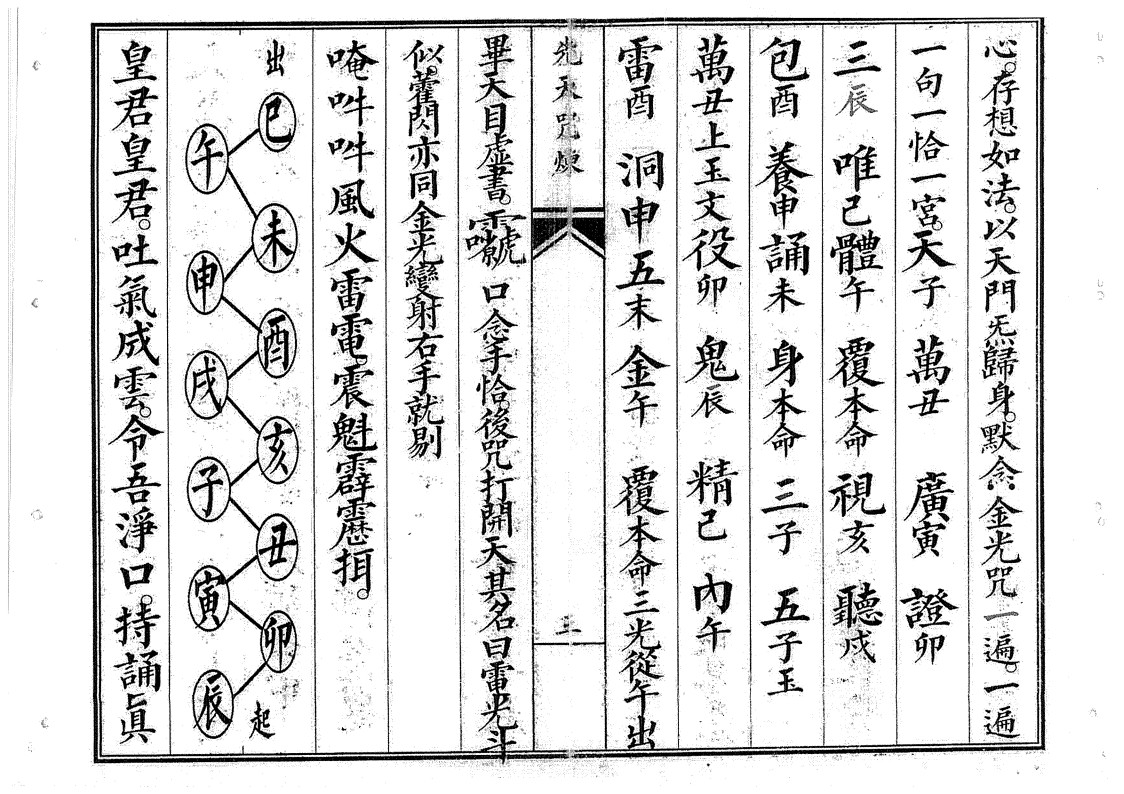 心。存想如法。以天門炁歸身。默念金光咒一遍。一遍
一句一恰一宮。天子 萬丑 廣寅 證卯
三辰 唯巳體午 覆本命 視亥 聽戌
包酉 養申 誦未 身本命 三子 五子玉
萬丑上玉文役卯 鬼辰 精巳 內午
雷酉 洞申 五未 金午 覆本命三光從午出
先天咒煉
三
畢天目虛書。口念手恰。後咒打開天其名曰雷光斗
似。藿閃亦同金光變射右手就剔
唵吽吽風火雷電。震魁霹靂挕。
出
巳
午
未
申
酉
戌
亥
子
丑
寅
卯
辰
起
皇君皇君。吐氣成雲。令吾淨口。持誦上真